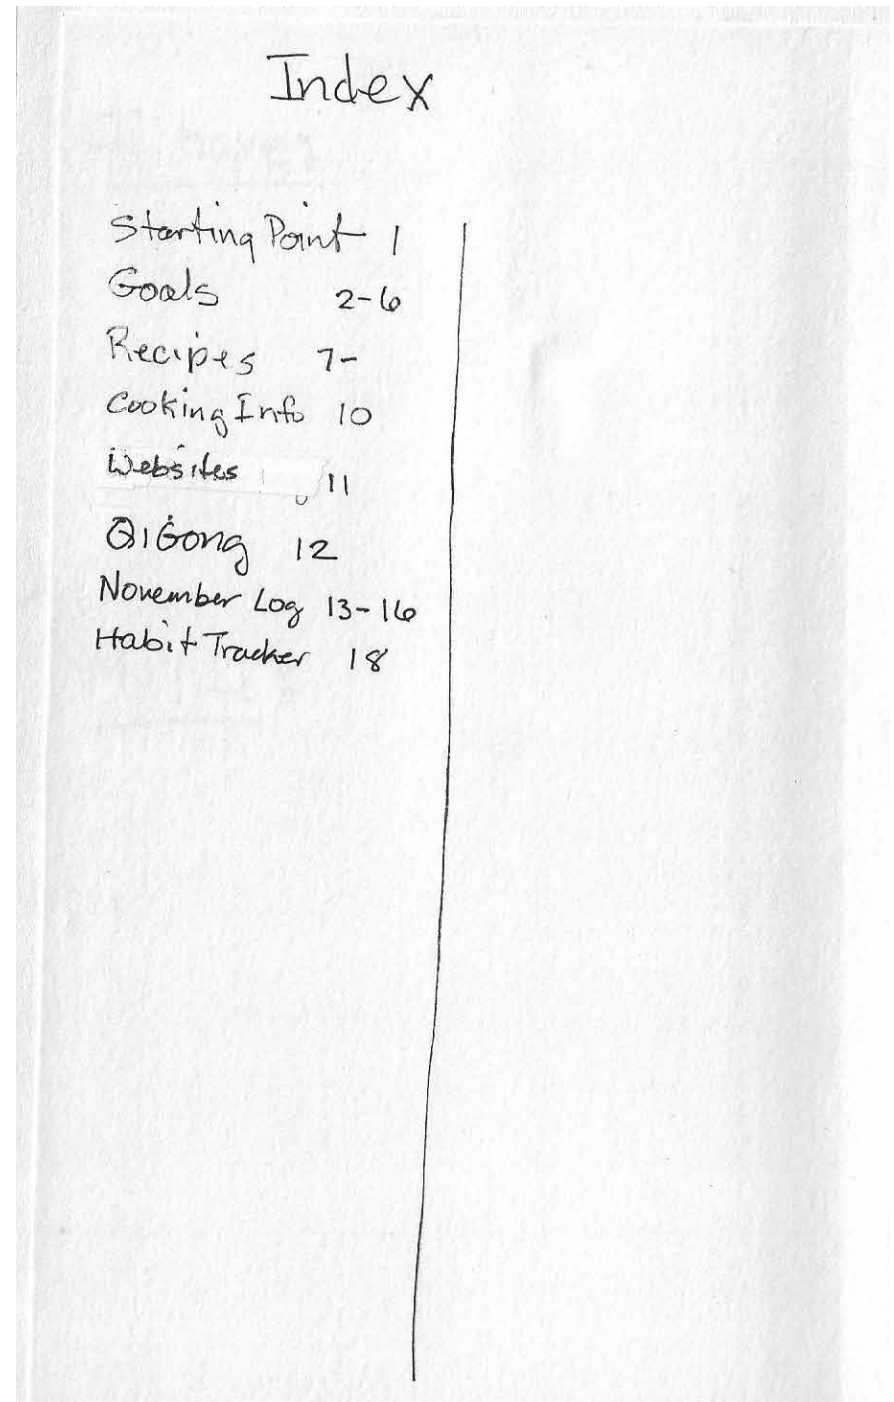 Index
Starting Point 1
Goals 2-6
Recipes 7-
Cooking Info 10
Websites 11
QiGong 12
November Log 13-16
Habit Tracker 18